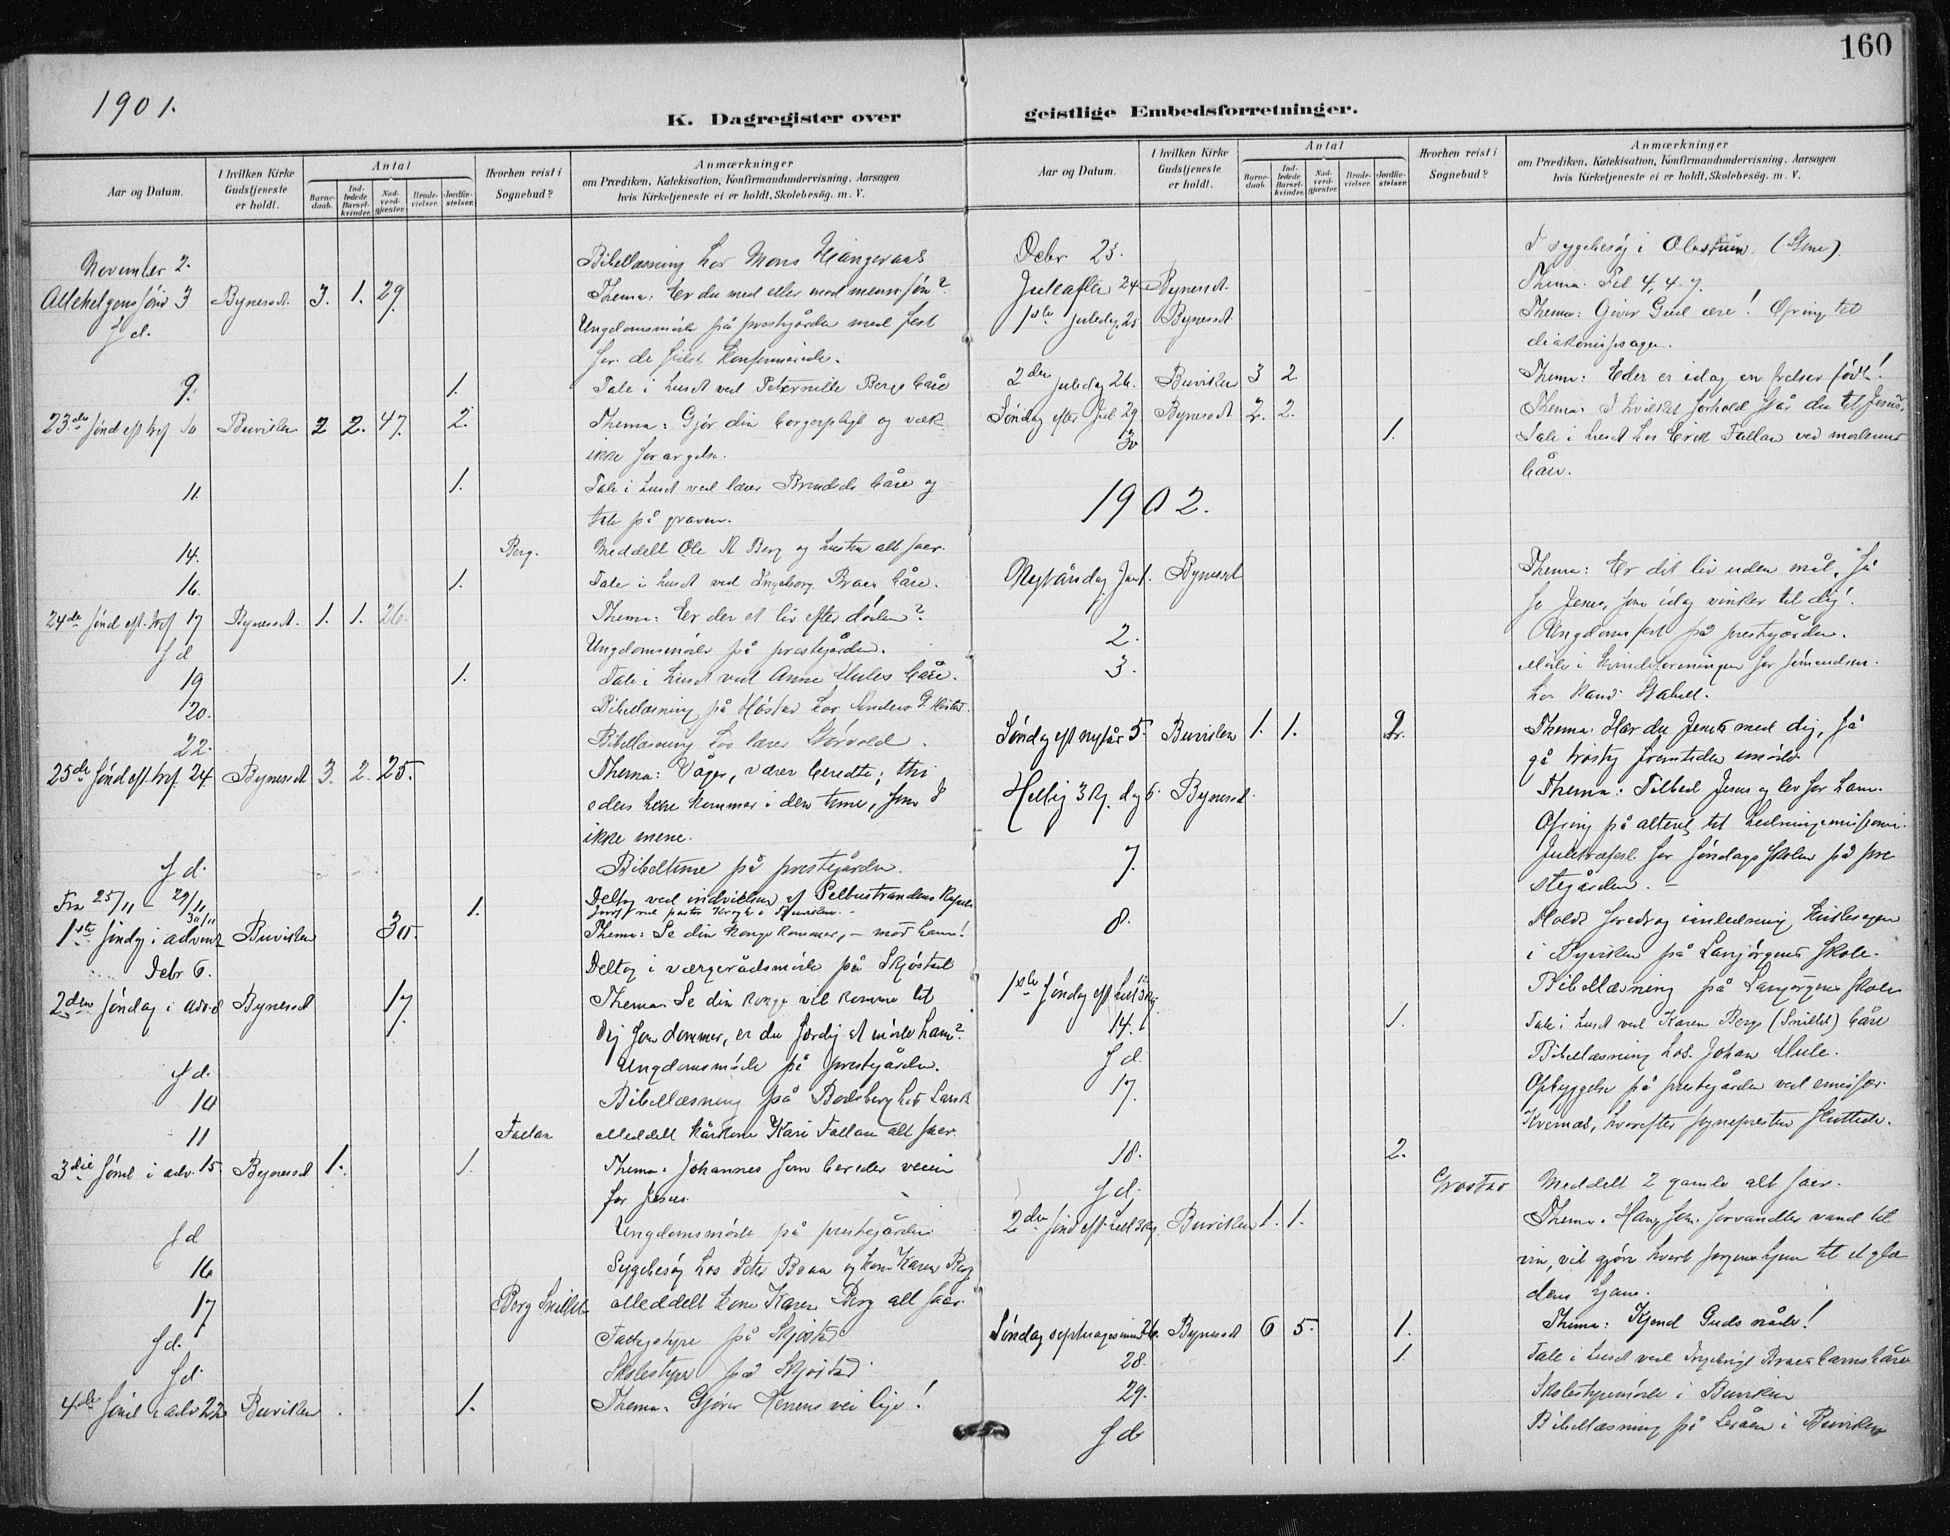 160
1901.
K. Dagregister over geistlige Embedsforretninger.
Aar og Datum.
I hvilken Kirke Gudstjeneste er holdt.
Antal
Barne-daab.
Ind-ledede Barsel-kvinder.
Nad-verd-gjæster.
Brude-vielser.
Jordfæ-stelser.
Hvorhen reist i Sognebud?
Anmærkninger
om Prædiken, Katekisation, Konfirmandundervisning, Aarsagen
hvis Kirketjeneste ei er holdt, Skolebesög. m. V.
November 2. Bibellæsning hos Mons
Allehelgens sønd 3 Bynesset. 3. 1. 29. Thema: Er du med eller mod menn. søn?
S. d. Ungdomsmøde på prestegården med fest
for de sidst konfirmerede.
9. 1. Tale i huset ved Peternille Bergs båre
23de sønd eft tref 10 Buviken 2 2. 47. 2. Thema: Gjør din borgerpligt og væk
ikke forargelse.
11. 1. Tale i huset ved lærer båre og
tale på graven.
14. Berg. Meddelt Ole Berg og hustru alt sacr.
16. 1. Tale i huset ved Ingeborg Braas båre.
24de sønd eft. tref 17 Bynesset. 1. 1. 26. Thema: Er der et liv efter døden?
S d Ungdomsmøde på prestegården.
19 1. Tale i huset ved Anne Mules båre.
20. Bibellæsning på Høstad hos Anders G. Høstad.
22. Bibellæsning hos lærer Størvold.
25de sønd eft. tref. 24 Bynesset 3. 2. 25. Thema: Våger, værer beredte; thi
eders herre kommer i den time, som I
ikke mene.
S d. Bibeltime på prestegården.
Fra 25/11 - 29/11 1. Deltog ved indvielsen af Selbustrandens Kapel.
30/11
1ste søndag i advent Buviken 30. Thema: Se din konge kommer, - mod ham!
Debr 6. Deltog i værgerådsmøde på Skjøstad
2den søndag i adv. 8 Bynesset 17 Thema: Se din konge vil komme til
dig som dommer, er du færdig at møde ham?
S d. Ungdomsmøde på prestegården.
10 Bibellæsning på Bodsberg hos Lars
11 Fallan Meddelt kårkone Kari Fallan alt sacr.
3die sønd i adv. 15 Bynesset 1. 1. Thema: Johannes som bereder veien
for Jesus.
S d Ungdomsmøde på prestegården
16 Sygebesøg hos Peter Braa og kone Karen Berg
17 Berg Meddelt kone Karen Berg alt sacr.
S d. Fattigstyre på Skjøstad
S d. Skolestyre på Skjøstad.
4de sønd i adv 22 Buviken 1. Thema: Gjører Herrens vei lige!
Aar og Datum.
I hvilken Kirke Gudstjeneste er holdt.
Antal
Barne-daab.
Ind-ledede Barsel-kvinder.
Nad-verd-gjæster.
Brude-vielser.
Jordfæ-stelser.
Hvorhen reist i Sognebud?
Anmærkninger
om Prædiken, Katekisation, Konfirmandundervisning, Aarsagen
hvis Kirketjeneste ei er holdt, Skolebesög. m. V.
Debr 23. I sygebesøg i
Juleaften 24 Bynesset Thema: Fil 4, 4-7.
1ste juledag 25 Bynesset Thema: Giver Gud ære! Ofring til
diakonissesagen.
2den juledag 26. Buviken 3 2. Thema: Eder er idag en frelser født!
Søndag efter Jul 29. Bynesset 2. 2. Thema: I hvilket forhold står du til Jesus.
30 1. Tale i huset hos Erik Fallan ved moderens
båre.
1902.
Nytårsdag Jan 1. Bynesset Thema: Er dit liv uden mål, så
se Jesus, som idag vinker til dig!
2. Ungdomsfest på prestegården.
3. Møde i kvindeforeningen for sømændsm.
hos
Søndag eft nytår 5. Buviken 1. 1. 2. Thema: Har du Jesus med dig, så
gå trøstig fremtiden imøde.
Hellig 3 kg. dag 6. Bynesset. Thema: Tilbed Jesus og lev for ham.
Ofring på alteret til hedningemissionen.
7. Juletræfest for søndagsskolen på pre
stegården. -
8. Holdt foredrag
i Byviken på Langørgens skole.
1ste søndag eft hell 3kg. 12 Bibellæsning på Langørgens skole
14. 1. Tale i huset ved Karen Bergs båre
S d. Bibellæsning hos Johan Mule.
17. Opbyggelse på prestegården ved emissær
Kvernås, hvorefter sognepresten sluttede.
18. 2.
S d. Meddelt 2 gamle alt sacr.
2den sønd eft. hell 3kg. Buviken 1. 1. Thema: Han, som forvandler vand til
vin, vil gjøre hvert sorgens hjem til et glæ
dens hjem.
Søndag septuagesima 26. Bynesset 6 5. 1. Thema: Kjend Guds nåde!
28. 1. Tale i huset ved Ingebrigt Braas barns båre
29. Skolestyremøde i Buviken
S d. Bibellæsning på Leråen i Buviken